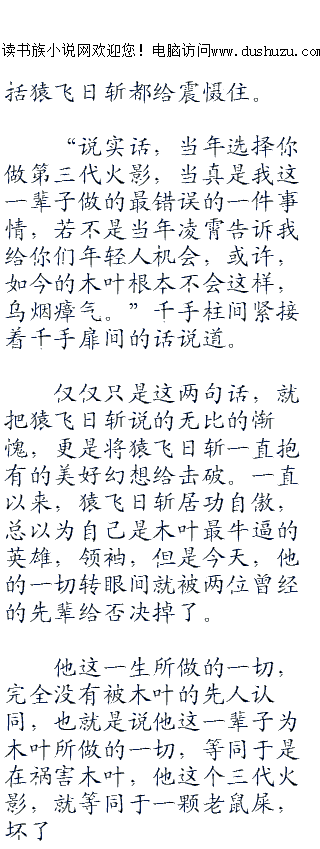 读书族小说网欢迎您！电脑访问www.dushuzu.com
括猿飞日斩都给震慑住。
“说实话，当年选择你
做第三代火影，当真是我这
一辈子做的最错误的一件事
情，若不是当年凌霄告诉我
给你们年轻人机会，或许，
如今的木叶根本不会这样，
乌烟瘴气。”千手柱间紧接
着千手扉间的话说道。
仅仅只是这两句话，就
把猿飞日斩说的无比的惭
愧，更是将猿飞日斩一直抱
有的美好幻想给击破。一直
以来，猿飞日斩居功自傲，
总以为自己是木叶最牛逼的
英雄，领袖，但是今天，他
的一切转眼间就被两位曾经
的先辈给否决掉了。
他这一生所做的一切，
完全没有被木叶的先人认
同，也就是说他这一辈子为
木叶所做的一切，等同于是
在祸害木叶，他这个三代火
影，就等同于一颗老鼠屎，
坏了